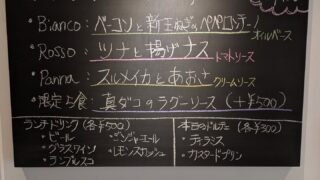 ・Bianco: ベーコンと新玉ねぎのペペロンチーノ
オイルベース
・Rosso: ツナと揚げナス
トマトソース
・Panna: スルメイカとあおさ
クリームソース
・限定5食: 真ダコのラグーソース (+¥500)
ランチドリンク (各¥500)
・ビール
・グラスワイン
・ランブルスコ
・ジンジャーエール
・レモンスカッシュ
本日のドルチェ (各¥300)
・ティラミス
・カスタードプリン